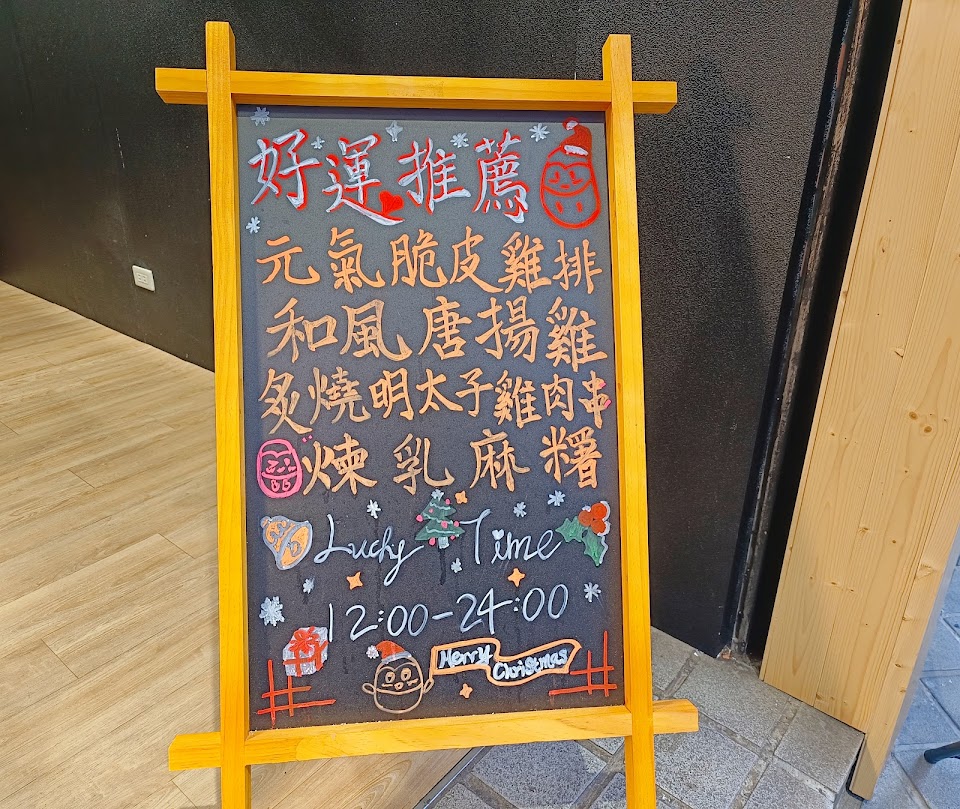 好運推薦
元氣脆皮雞排
和風唐揚雞
炙燒明太子雞肉串
煉乳麻糬
Lucky Time
12:00-24:00
Merry Christmas